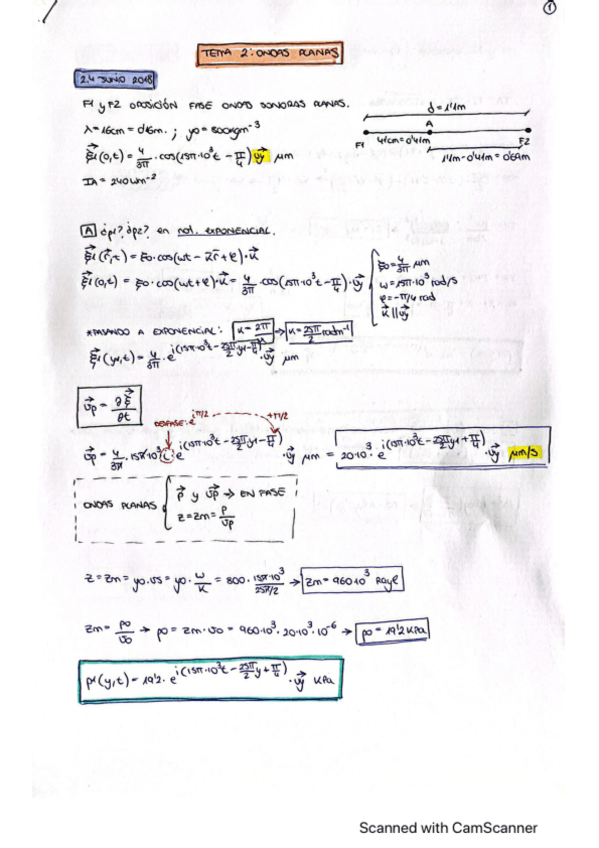 ①
TEMA 2: ONDAS PLANAS
2.4 JUNIO 2018
F1 y F2 OPOSICIÓN FASE ONDAS SONORAS PLANAS.
d = 1'1m
λ = 16cm = 0'16m. ; γ0 = 800kgm⁻³
A
F1
41cm = 0'41m
F2
ξ1(0,t) = 4/3π · cos(15π·10³t - π/4) uy μm
1'1m - 0'41m = 0'69m
IA = 240Wm⁻²
A ¿p1?, ¿p2? en not. EXPONENCIAL.
ξ1(r,t) = ξ0 · cos(ωt - kr + φ) · u
ξ1(0,t) = ξ0 · cos(ωt + φ) · u = 4/3π · cos(15π·10³t - π/4) · uy
ξ0 = 4/3π μm
ω = 15π·10³ rad/s
φ = -π/4 rad
k || uy
PASANDO A EXPONENCIAL: k = 2π/λ → k = 25π/2 radm⁻¹
ξ1(y,t) = 4/3π · e^i(15π·10³t - 25π/2 y1 - π/4) · uy μm
vp = ∂ξ/∂t
DESFASE: e^iπ/2
+π/2
vp = 4/3π · 15π·10³ · i · e^i(15π·10³t - 25π/2 y1 - π/4) · uy μm = 20·10³ · e^i(15π·10³t - 25π/2 y1 + π/4) · uy μm/s
ONDAS PLANAS
p y vp → EN FASE
z = zm = p/vp
z = zm = γ0 · vs = γ0 · ω/k = 800 · 15π·10³/25π/2 → zm = 960·10³ Rayl
zm = p0/v0 → p0 = zm · v0 = 960·10³ · 20·10³ · 10⁻⁶ → p0 = 19'2 KPa
p1(y,t) = 19'2 · e^i(15π·10³t - 25π/2 y + π/4) · uy KPa
Scanned with CamScanner